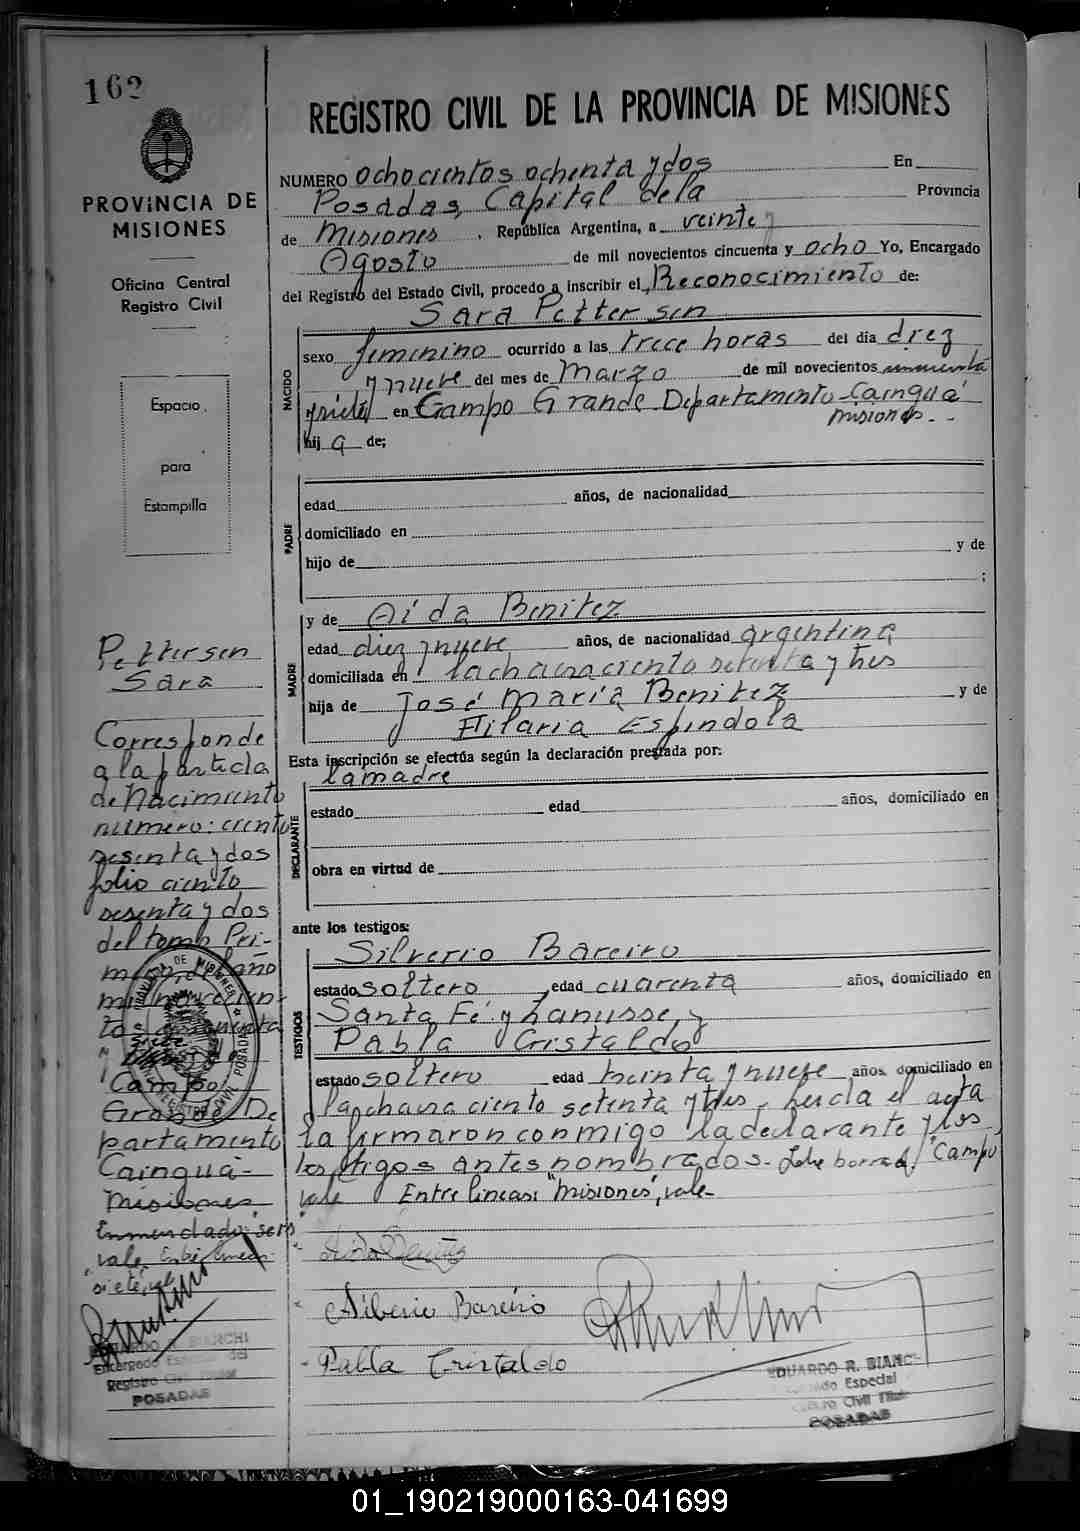 162
PROVINCIA DE
MISIONES
Oficina Central
Registro Civil
Espacio
para
Estampilla
Pettersen
Sara
Corresponde
a la partida
de Nacimiento
número: ciento
sesenta y dos
folio ciento
sesenta y dos
del tomo Pri-
año
Campo
Grande De
partamento
Cainguá-
Misiones
Enmendado: "
vale. Entre lineas:
siete, vale
BIANCHI
Encargado Especial del
Registro Civil
POSADAS
REGISTRO CIVIL DE LA PROVINCIA DE MISIONES
NUMERO Ochocientos ochenta y dos En
Posadas, Capital de la Provincia
de Misiones, República Argentina, a veinte
Agosto de mil novecientos cincuenta y ocho Yo, Encargado
del Registro del Estado Civil, procedo a inscribir el Reconocimiento de:
Sara Pettersen
NACIDO
sexo femenino ocurrido a las trece horas del día diez
y nueve del mes de Marzo de mil novecientos cincuenta
y siete en Campo Grande Departamento Cainguá
Misiones.--
hija de;
PADRE
edad años, de nacionalidad
domiciliado en
hijo de y de
;
MADRE
y de Aída Benitez
edad diez y nueve años, de nacionalidad argentina
domiciliada en la chacra ciento setenta y tres
hija de José María Benitez y de
Hilaria Espindola
Esta inscripción se efectúa según la declaración prestada por:
la madre
DECLARANTE
estado edad años, domiciliado en
obra en virtud de
ante los testigos:
TESTIGOS
Silverio Bareiro
estado soltero, edad cuarenta años, domiciliado en
Santa Fé y Lanusse, y
Pabla Cristaldo
estado soltero edad treinta y nueve años, domiciliado en
la chacra ciento setenta y tres, leida el acta
la firmaron conmigo la declarante y los
testigos antes nombrados.- Sobre borrado: "Campo"
vale Entre lineas: "Misiones", vale-
Silberio Bareiro
Pabla Cristaldo
EDUARDO R. BIANC
Especial
Civil
POSADAS
01_190219000163-041699